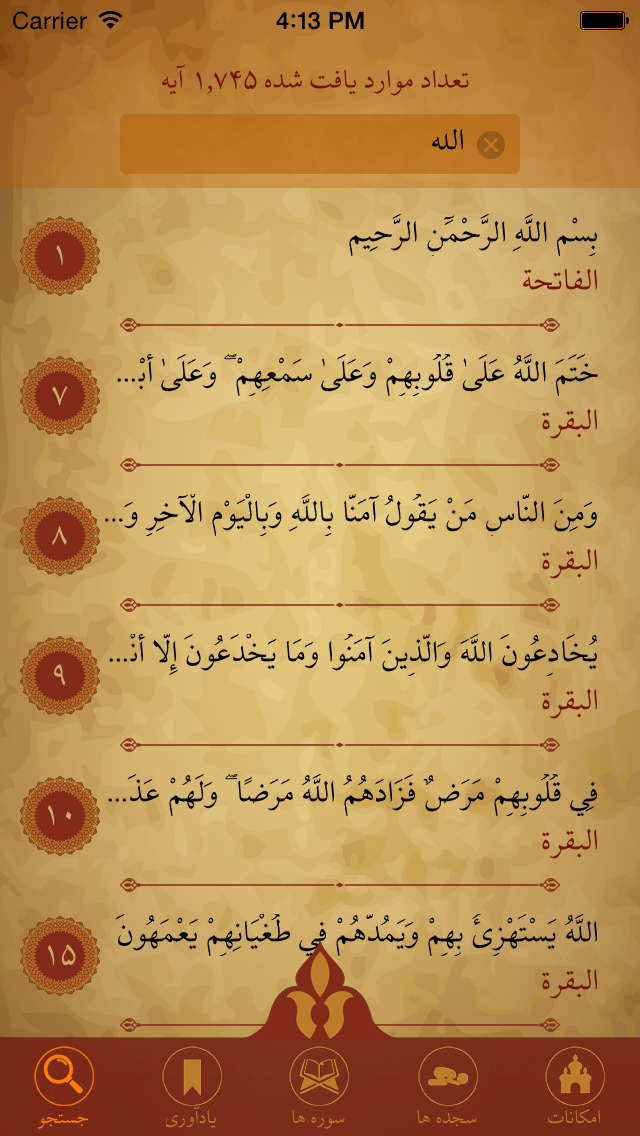 Carrier 4:13 PM
تعداد موارد یافت شده ۱,۷۴۵ آیه
الله
بِسْمِ اللَّهِ الرَّحْمَٰنِ الرَّحِيمِ
۱
الفاتحة
خَتَمَ اللَّهُ عَلَىٰ قُلُوبِهِمْ وَعَلَىٰ سَمْعِهِمْ ۖ وَعَلَىٰ أَبْ...
۷
البقرة
وَمِنَ النَّاسِ مَنْ يَقُولُ آمَنَّا بِاللَّهِ وَبِالْيَوْمِ الْآخِرِ وَ...
۸
البقرة
يُخَادِعُونَ اللَّهَ وَالَّذِينَ آمَنُوا وَمَا يَخْدَعُونَ إِلَّا أَنْ...
۹
البقرة
فِي قُلُوبِهِمْ مَرَضٌ فَزَادَهُمُ اللَّهُ مَرَضًا ۖ وَلَهُمْ عَذَ...
۱۰
البقرة
اللَّهُ يَسْتَهْزِئُ بِهِمْ وَيَمُدُّهُمْ فِي طُغْيَانِهِمْ يَعْمَهُونَ
۱۵
البقرة
امکانات
سجده ها
سوره ها
یادآوری
جستجو